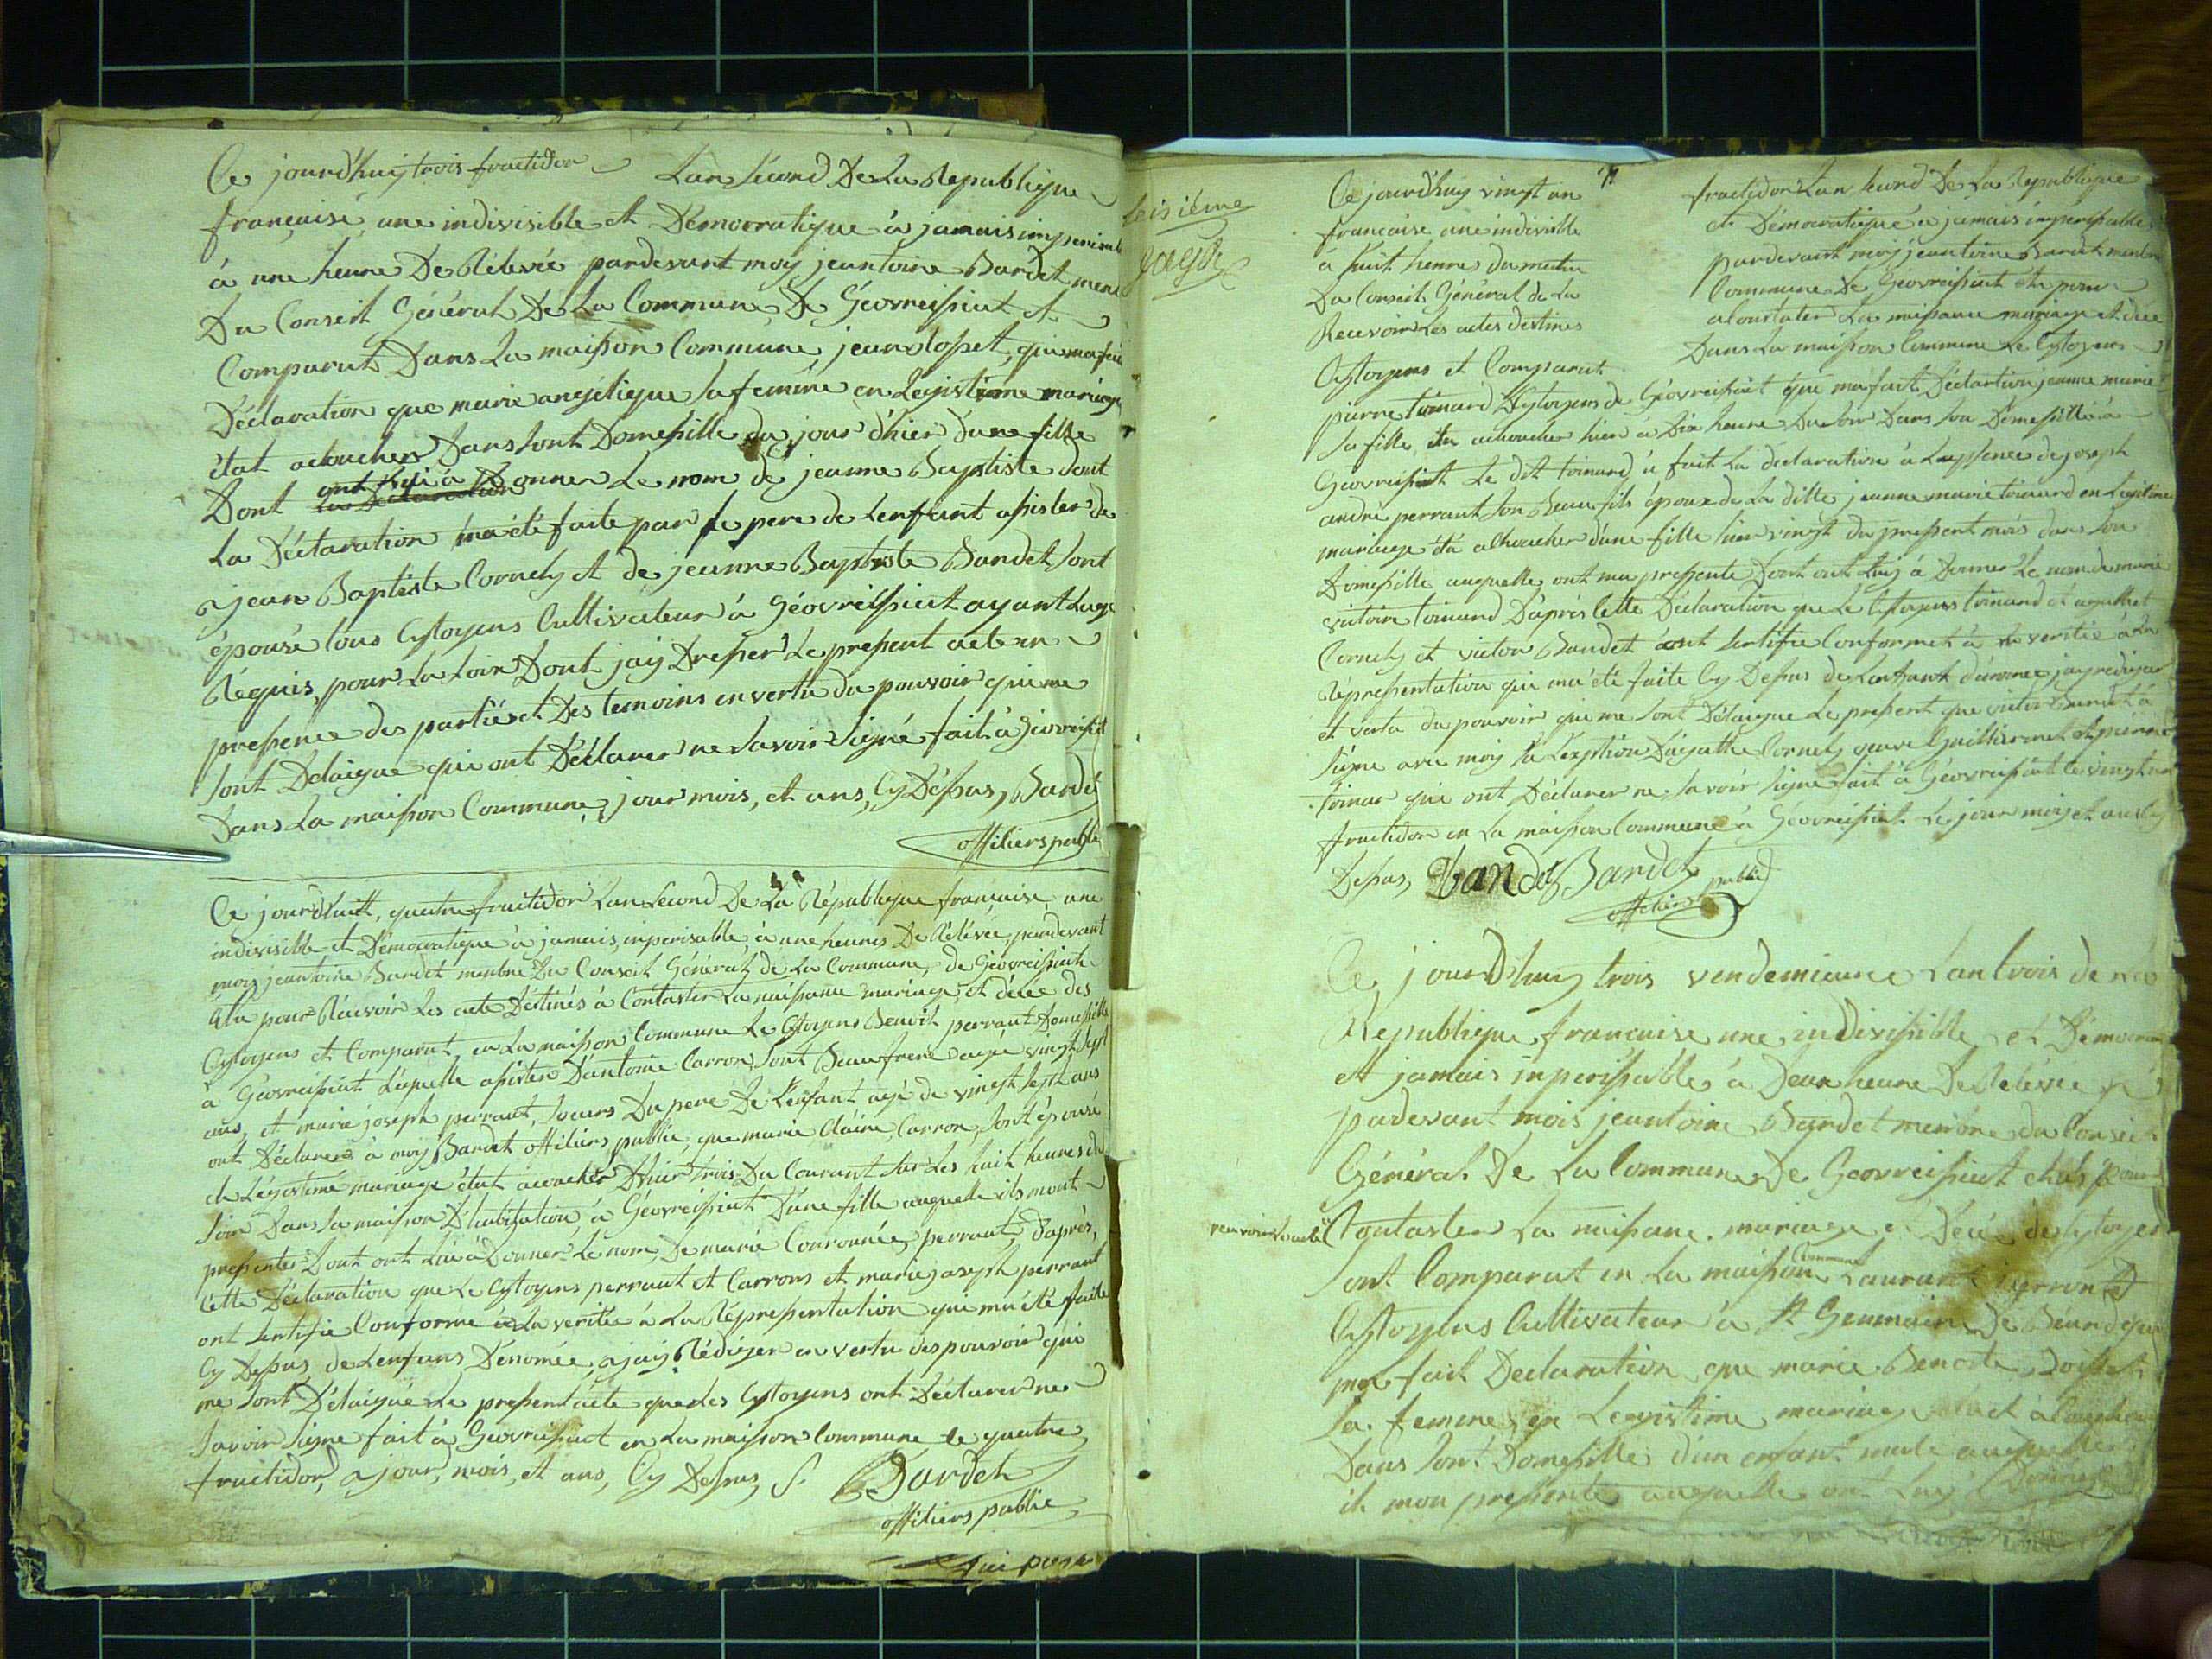 Ce jourd'huy trois fructidor L'an second De La Republique
francaise, une indivisible et Démocratique à jamais imperisab
à une heure De Rélevée pardevant moy jeantoine Bardet mem
Du Conseil Général De La Commune De Géovreissiat et
Comparut Dans La maisson Commune jean
Déclaration que marie angélique sa femme en Legistime mariage
était acloucher Dans sont Domessille du jour d'hier d'une fille
Dont ont Lui à Donner Le nom de jeanne Baptiste dont
La Déclaration ma été faite par le pere de Lenfant assister de
jean Baptiste Cornely et de jeanne Baptiste Bardet sont
épouse tous Cytoyens Cultivateur à Géovreissiat ayant Lage
Réquis, pour La Loix Dont jay Dresser Le pressent acte en
pressence des parties et Des temoins en vertu du pouvoir qui me
sont Delaigue qui ont Déclarer ne savoir signé fait à Géovreissiat
Dans La maisson Commune jour mois, et ans, Cy Déssus, Bardet
offitiers public
Ce jourd'huitt, quatre fructidor Lan second De La République francaise, une
indivisible et Démocratique à jamais, inperisable, à une heures De Rélevée, pardevant
moy jeantoine Bardet menbre Du Conseil Général de La Commune, de Géovreissiat
élu pour Récevoir Les acte Déstinés à Contaster La naissance mariage et décée des
Cytoyens et Comparut en La maisson Commune Le Cytoyens Benoit perrant Domessille
à Géovreissiat Lequelle assister D'antoine Carron sont Beaufrere agé vingt sept
ans, et marie joseph perrant, soeurs Du pere De Lenfant agé de vingt sept ans
ont Déclarer à moy Bardet offitiers public, que marie Claire Carron, sont épouse
de Légistime mariage était acoucher D'hier trois Du Courant sur Les huit heures du
soir Dans sa maisson D'habitation à Géovreissiat D'une fille auquelle ils mont
pressenter Dont ont Lui à Donner Le nom, De marie Couronnée perrant, Daprès,
Cette Déclaration que Le Cytoyens perrant et Carrons et marie joseph perrant
ont sertifie Conforme à La veritée à La Répressentation qui ma été faite
Cy Dessus de Lenfans Dénomée, jay Rédiger en vertu des pouvoir qui
me sont Délaigué Le pressent acte que Les Cytoyens ont Déclarer ne
savoir signe fait à Géovreissiat en La maisson Commune le quatre
fructidor, jour, mois, et ans, Cy Dessus, Bardet
offitiers public
seisième
page
Ce jourd'huy vingt un fructidor Lan second De La Republique
francaise une indivisible et Démocratique à jamais imperissable
à huit heures du matin pardevant moy jeantoine Bardet menbre
Du Conseil Général de La Commune De Géovreissiat élu pour
Recevoir Les actes destines a Constater La naissance mariage et décée
Cytoyens et Comparut Dans La maisson Commune Le Cytoyens
pierre toinard Cytoyens de Géovreissiat qui ma fait Déclartion jeanne marie
sa fille, étu achoucher hier à Dix heure Du soir Dans son Domessille à
Géovreissiat Le dit toinard à fait La declaration à Lapssence de joseph
andré perrant son Beau fils époux de La ditte jeanne marie toinard en Legitime
mariage été alhoucher d'une fille hier vingt du pressent mois dans son
Domessille auquelle ont ma pressente Dont ont Luy à Donner Le nom de marie
victoire toinard D'après Cette Déclaration que Le Cytoyens toinard et agathe
Cornely et victor Bandet sont sertifie Conformet à la veritié à La
Répressentation qui ma été faite Cy Dessus de Lenfant dénomé jay rediger
et vertu du pouvoir que me sont Délaigue Le pressent que victor Bandet à
signe avec moy à Lexeption D'agathe Cornely veuve Guillermet et pierre
toinar qui ont Déclarer ne savoir signe fait à Géovreissiat le vingt un
fructidor en La maisson Commune à Géovreissiat Le jour mois et ans Cy
Dessus, Bandet Bardet
offitiers public
Ce jourD'huy trois vendemiaire Lan trois de La
Republique francaise une indivissible et Démocra
et jamais inperissables à Deux heure De Relevée
pardevant mois jeantoine Bardet menbre du Conseil
Général De La Commune De Géovreissiat élus pour
Contaster La naissance mariage et Décée de Cytoyen
sont Comparut en La maisson Commune Laurant perron
Cytoyens Cultivateur à St Germain De
ma fait Declaration que marie Benoite
sa femme en Legistime mariage était
Dans sont Domessille d'un enfant male auquelle
il mon pressenté auquelle ont Luy Donner